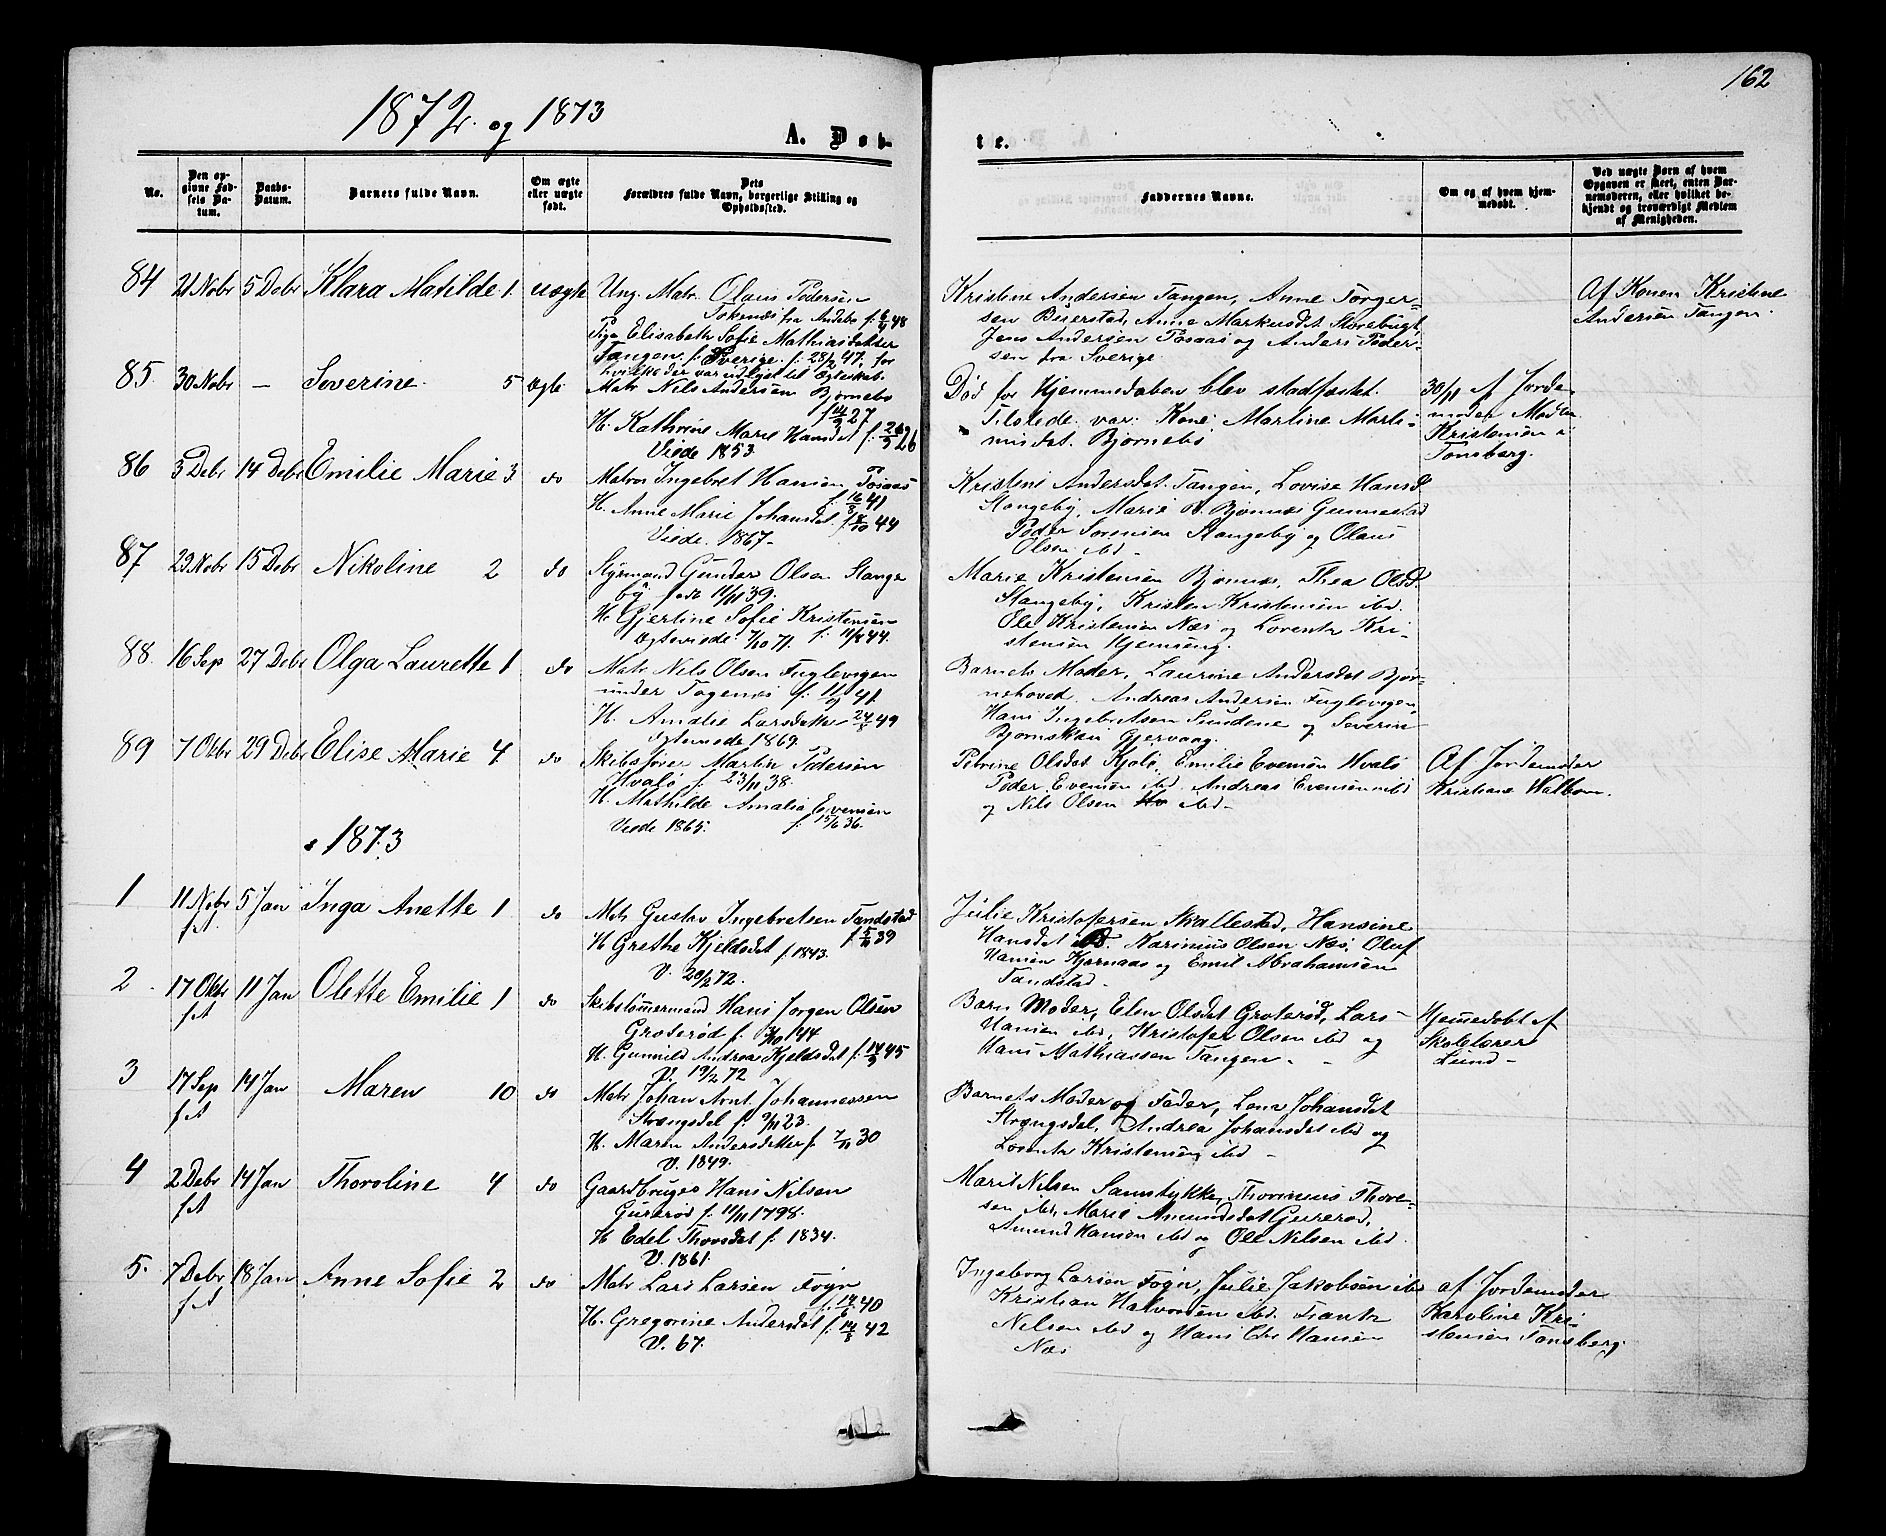 162
1872 og 1873
A. Døb-
te.
No.
Den op-
givne Fød-
sels Da-
tum.
Daabs-
Datum.
Barnets fulde Navn.
Om ægte
eller uægte
født.
Dets
Forældres fulde Navn, borgerlige Stilling og
Opholdssted.
Faddernes Navne.
Om og af hvem hjem-
medøbt.
Ved uægte Børn af hvem
Opgaven er skeet, enten Bar-
nemoderen, eller hvilket be-
kjendt og troværdigt Medlem
af Menigheden.
84 21 Nobr 5 Debr Klara Matilde 1. uægte
Ung. Matr. Olaus Pedersen
fra Andebo f. 48
Pige Elisabeth Sofie Mathiasdatter
Tangen. f. Sverige. f. 28/2 47, for
hvilke der var udlyst til Ægteskab.
Kristine Andersen Tangen, Anne Torger-
sen Beierstad, Anne Markusdt. Storebugt,
Jens Andersen Tosaas og Anders Peder-
sen fra Sverige.
Af Konen Kristine
Andersen Tangen.
85. 30 Nobr — Severine. 5 ægte
Matr Nils Andersen Bjørnebo
f. 27
H. Kathrine Marie Hansdt f. 26
Viede 1853.
Død før Hjemmedaaben blev stadfæstet.
Tilstede var: Kone Martine Marti-
nusdat. Bjørnebo
30/11 af Jorde-
moder
Kristensen i
Tønsberg.
86 3 Debr 14 Debr Emilie Marie 3 do
Matros Ingebret Hansen Tosaas
f. 41
H. Anne Marie Johansdat f. 44
Viede. 1867.
Kristine Andersdt. Tangen, Lovise Hansd
Stangeby, Marie Bjønnes Gunnestad
Peder Sørensen Stangeby og Olaus
Olsen ibd
87 23 Nobr 15 Debr Nikoline 2 do
Styrmand Gunder Olsen Stange
by født 11/11 39.
H. Gjertine Sofie Kristensen
Ægteviede 7/10 71. f. 11/8 44.
Marie Kristensen Bjønnes, Thea Olsd.
Stangeby, Kristen Kristensen ibd.
Ole Kristensen Næs og Lorents Kri-
stensen Hjemseng.
88. 16 Sep 27 Debr Olga Laurette 1 do
Matr Nils Olsen Fuglevigen
under Togenes f. 41.
H. Amalie Larsdatter 49
Ægteviede 1869.
Barnets Moder, Laurine Andersdat Bjør-
nehoved, Andreas Andersen Fuglevigen,
Hans Ingebretsen Sundene og Severin
Bjørnskau Gjervaag.
89 7 Oktbr 29 Debr Elise Marie 4 do
Skibsfører Martin Pedersen
Hvalø f. 23/11 38.
H. Mathilde Amalia Evensen
Viede 1865. f. 15/6 36.
Petrine Olsdat Kjølø, Emilie Evensen Hvalø
Peder Evensen ibd. Andreas Evensen ibd
og Nils Olsen ibd
Af Jordemoder
Kristiane Walbom.
1873
1 11 Nobr 5 Jan Inga Anette 1 do
f A
Matr Gustav Ingebretsen Tandstad
f. 39
H Grethe Kjeldsdat f. 1843.
V. 20/2 72.
Julie Kristofersen Skallestad, Hansine
Hansdat ibd. Karinius Olsen Næs, Oluf
Hansen Kjørnaas og Emil Abrahamsen
Tandstad
2 17 Oktbr 11 Jan Olette Emilie 1 do
f A
Skibstømmermand Hans Jørgen Olsen
Groterød f. 44
H. Gunnild Andrea Kjeldsdat f. 45
V. 19/2 72
Barns Moder, Elen Olsdat Groterød, Lars
Hansen ibd, Kristofer Olsen ibd og
Hans Mathiassen Tangen
Hjemedøbt af
Skolelærer
Lund
3 17 Sep 14 Jan Maren 10 do
f A
Matr Johan Arnt Johannessen
Strængsdal f. 9/11 23.
H. Maren Andersdatter f. 30
V. 1849.
Barnets Moder og Fader, Lene Johansdat
Strængsdal, Andrea Johansdat ibd og
Lorents Kristensen ibd
4 2 Debr 14 Jan Thoroline 4 do
f A
Gaardbruger Hans Nilsen
Gurerød f. 11/11 1798.
H Edel Thorsdat f. 1834.
V. 1861.
Marit Nilsen Samstykke, Thorinius Thore-
sen ibd, Marie Amundsdat Gurerød,
Amund Hansen ibd og Ole Nilsen ibd.
5. 7 Debr 18 Jan Anne Sofie 2 do
f A
Matr Lars Larsen Føyn
f. 40
H. Gregorine Andersdat f. 42
V. 67.
Ingeborg Larsen Føyn, Julie Jakobsen ibd
Kristian Halvorsen ibd. Frants
Nilsen ibd og Hans Chr Hansen
Næs
af Jordemoder
Karoline Kri-
stensen Tønsberg.